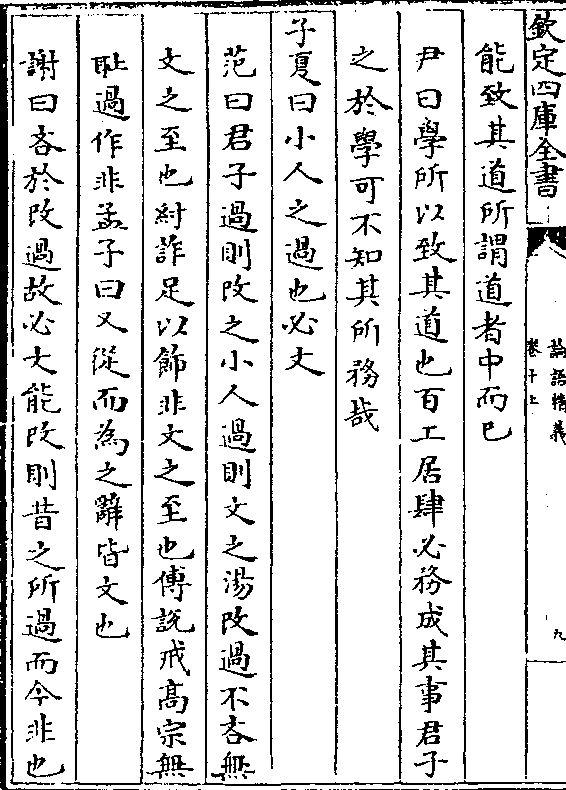 欽定四庫全書
論語精義
卷十上
九
能致其道所謂道者中而已
尹曰學所以致其道也百工居肆必務成其事君子
之於學可不知其所務哉
子夏曰小人之過也必文
范曰君子過則改之小人過則文之湯改過不吝無
文之至也紂詐足以飾非文之至也傅説戒髙宗無
耻過作非孟子曰又從而為之辭皆文也
謝曰吝於改過故必文能改則昔之所過而今非也